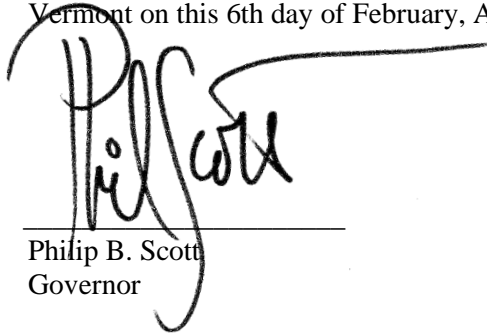 Vermont on this 6th day of February, A
Phil Scott
Philip B. Scott
Governor